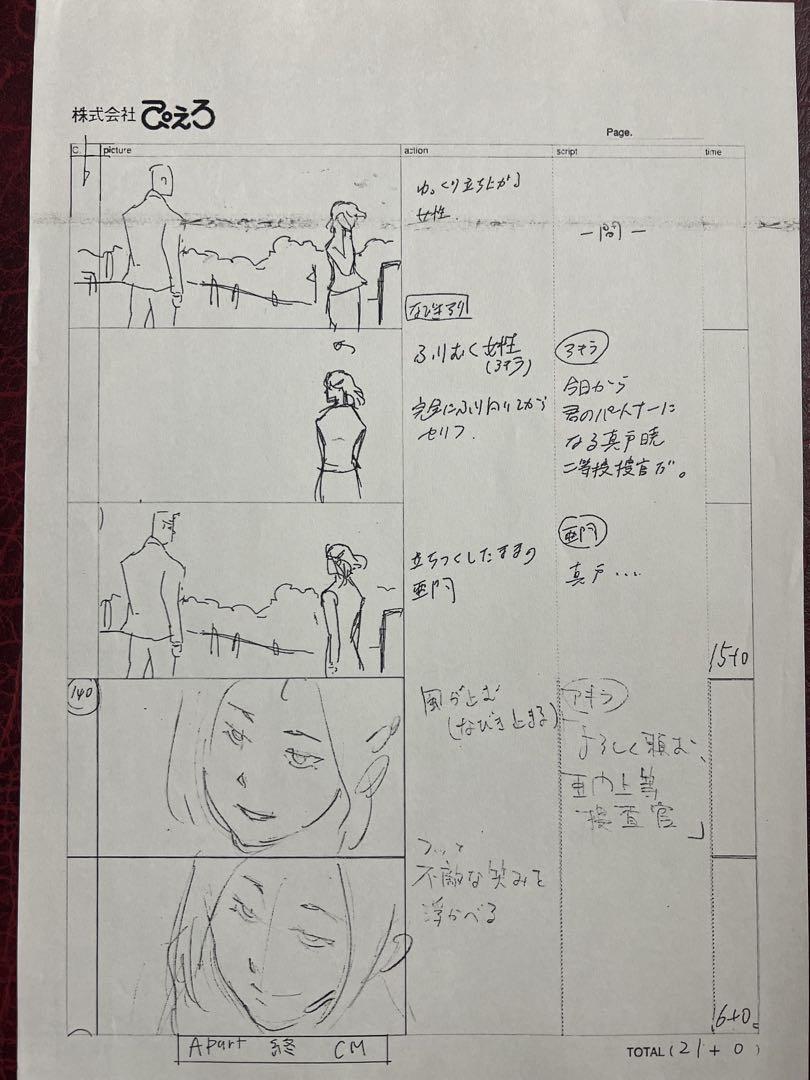 株式会社 ぴえろ
Page.
C. picture action script time
ゆっくり立ち上がる
女性.
ー間ー
なびきアリ
ふりむく女性
(アキラ)
完全にふり向いてから
セリフ.
アキラ
今日から
君のパートナーに
なる真戸暁
二等捜査官だ。
立ちつくしたままの
亜門
亜門
真戸...
15+0
140
風が止む
(なびき止まる)
アキラ
「よろしく頼む、
亜門上等
捜査官」
フッと
不敵な笑みを
浮かべる
6+0
A part 終 CM
TOTAL (21 + 0)